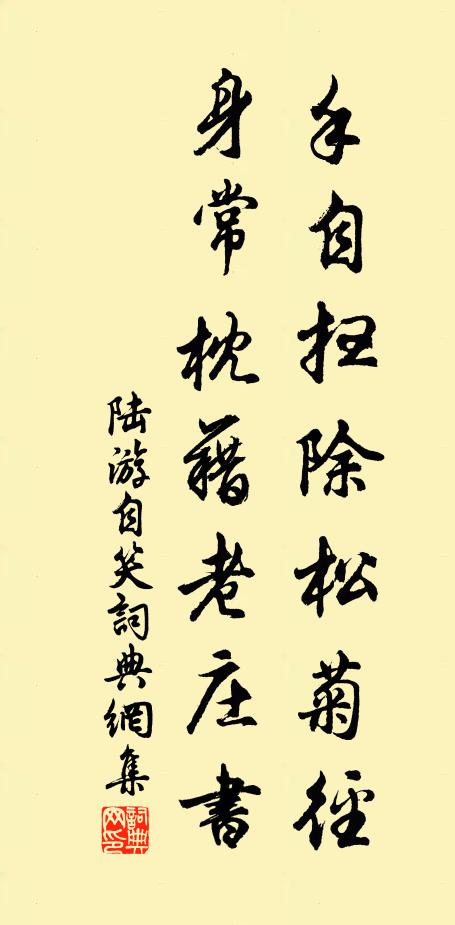 手自扫除松菊径
身常枕藉老庄書
陆游自笑詞典網集
詞典網印